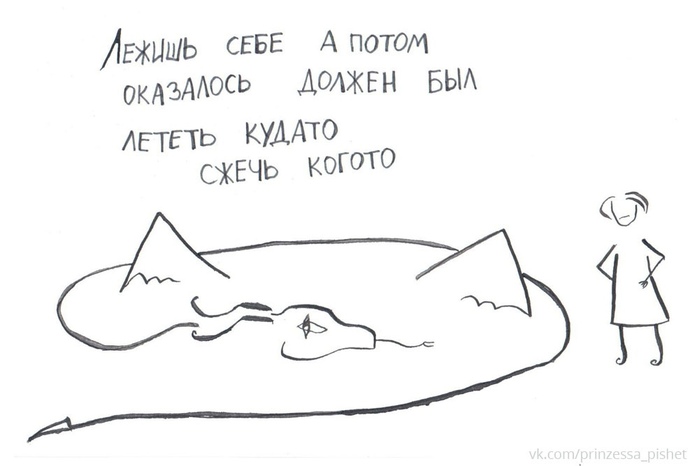 Лежишь себе а потом
оказалось должен был
лететь кудато
сжечь когото
vk.com/prinzessa_pishet